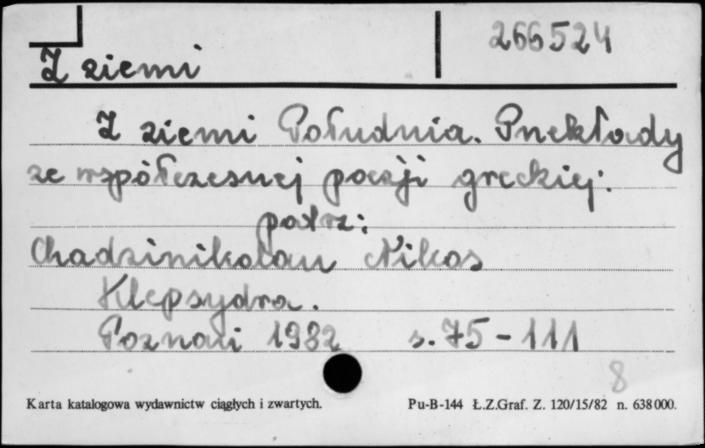 Z ziemi
266524
Z ziemi Południa. Przekłady
ze współczesnej poezji greckiej:
patrz:
Chadzinikolau Nikos
Klepsydra.
Poznań 1982 s. 75-111
8
Karta katalogowa wydawnictw ciągłych i zwartych. Pu-B-144 Ł.Z.Graf. Z. 120/15/82 n. 638000.